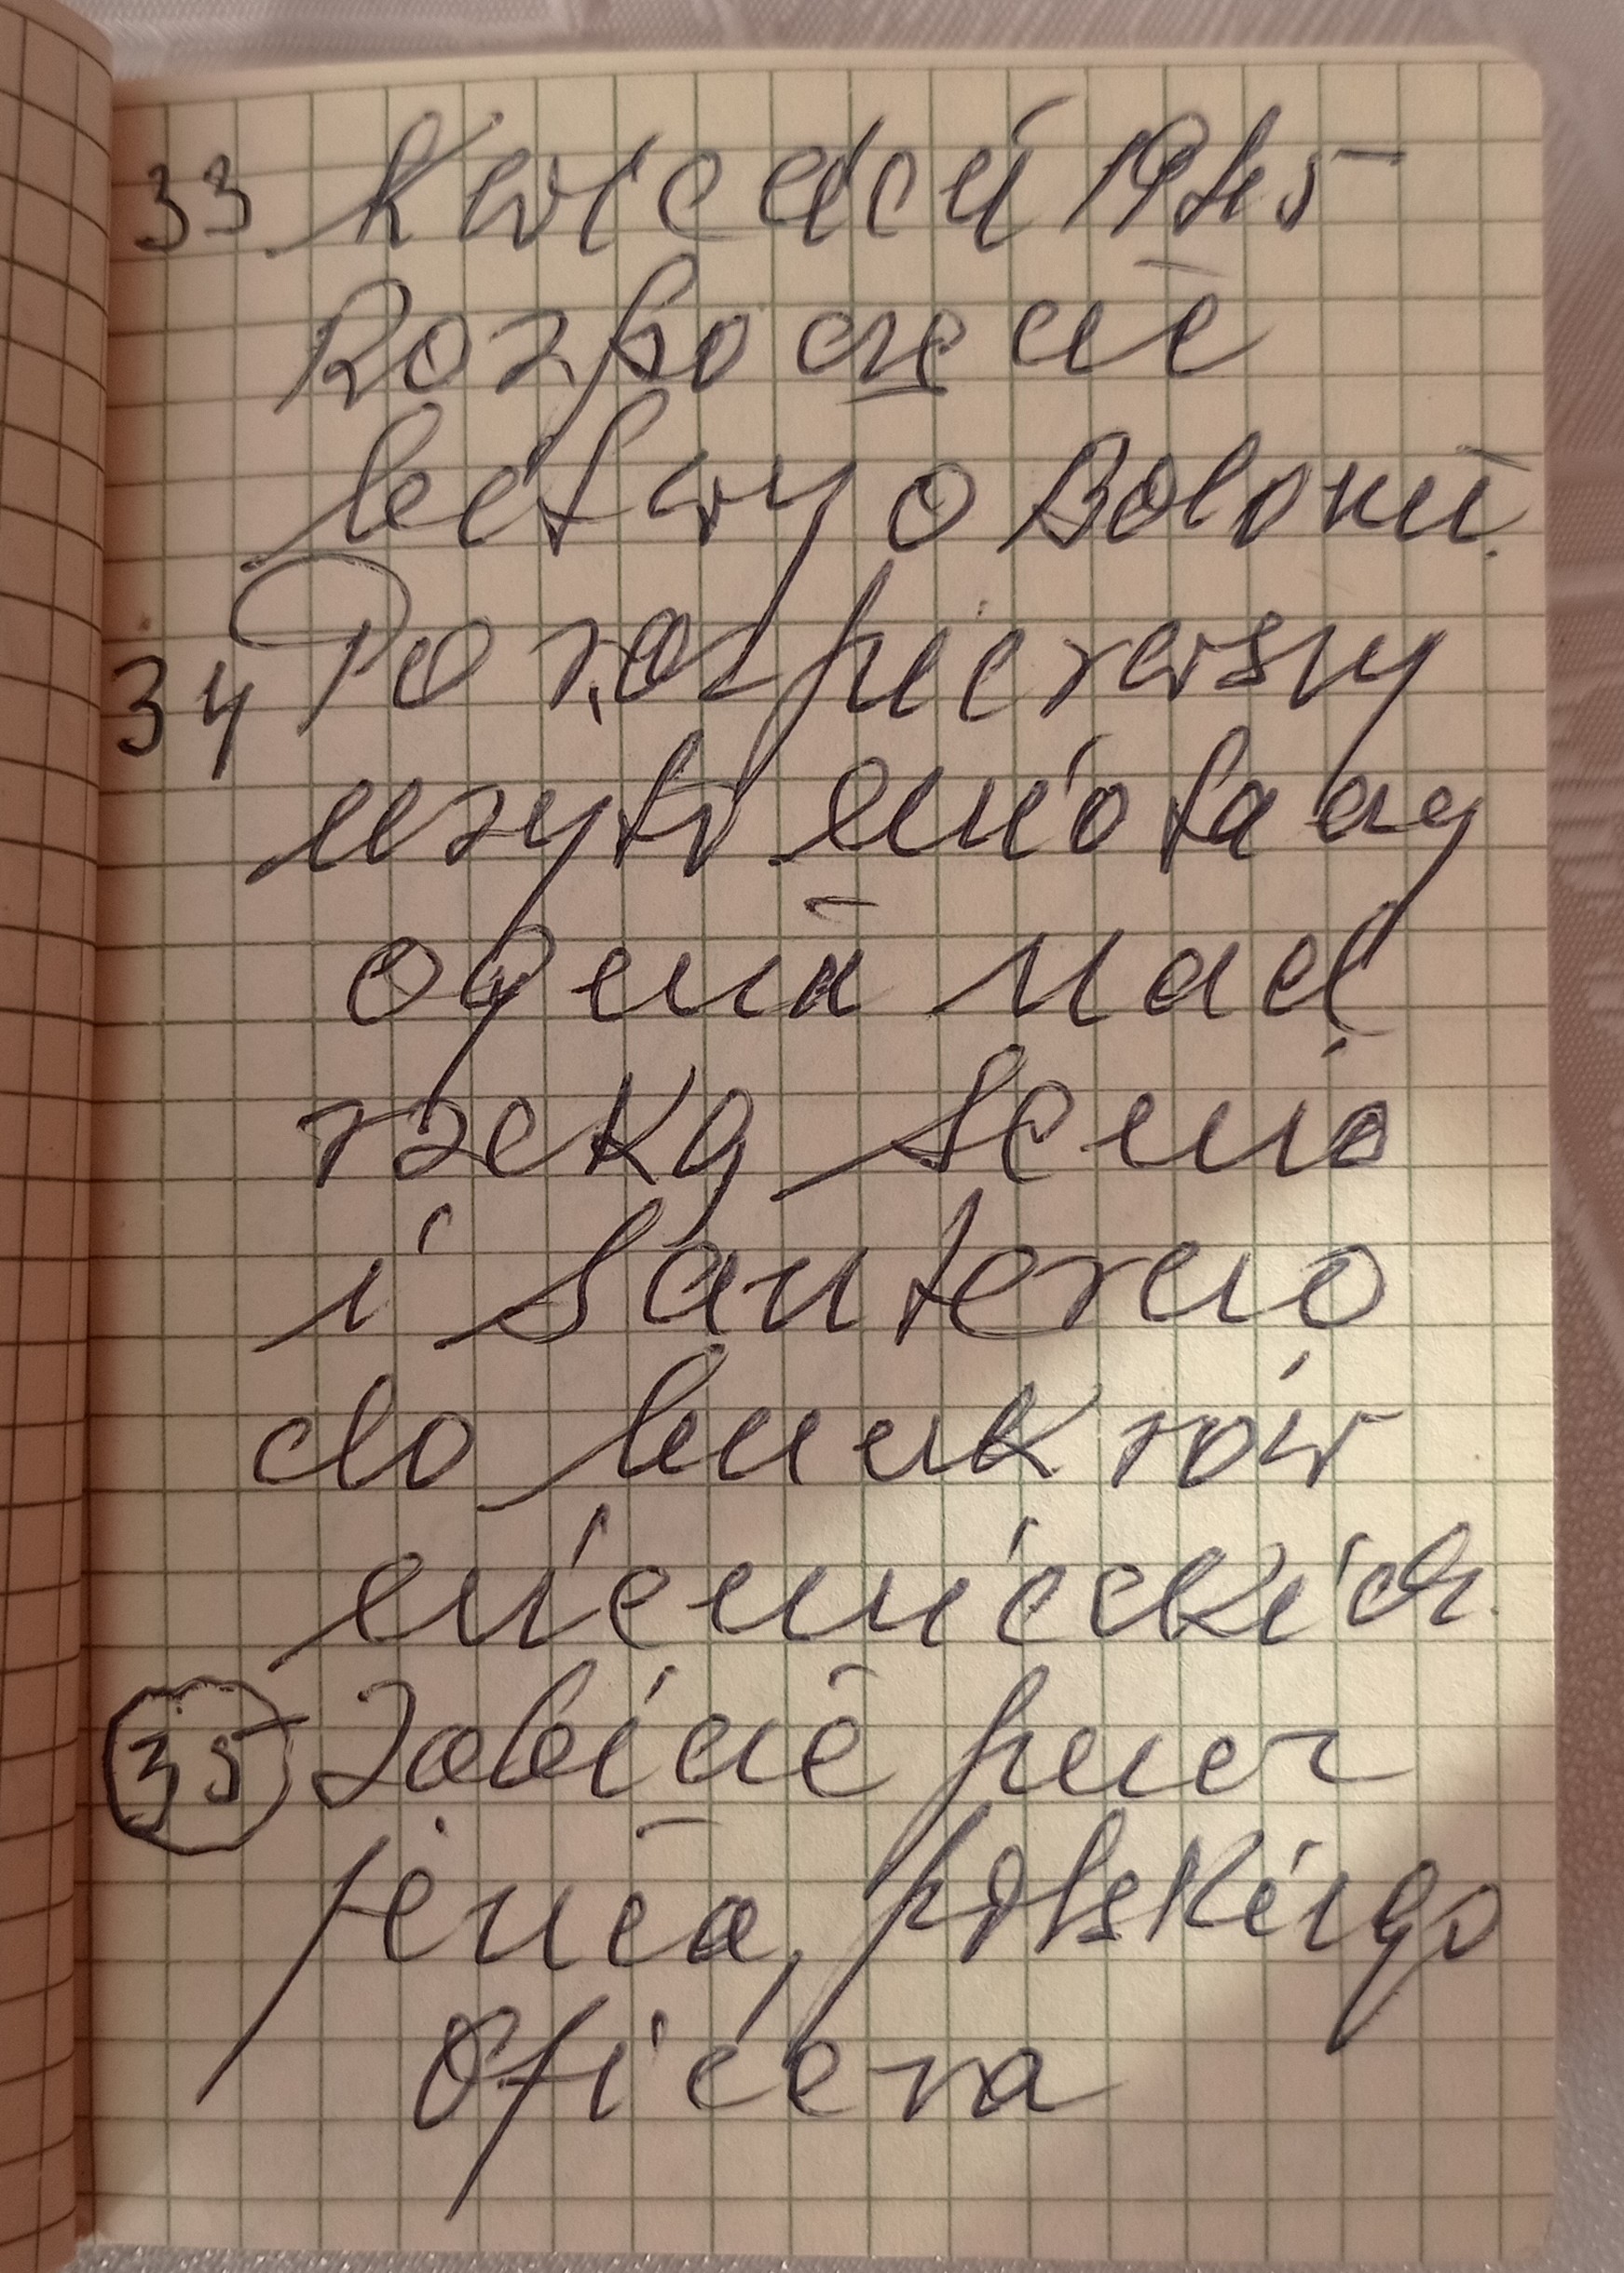 33 Kwiecień 1945
Rozpoczęcie
bitwy o Bolonii.
34 Po raz pierwszy
użyto miotaczy
ognia nad
rzeką Senio
i Santerno
do bunkrów
niemieckich.
35 Zabicie przez
jeńca, polskiego
oficera